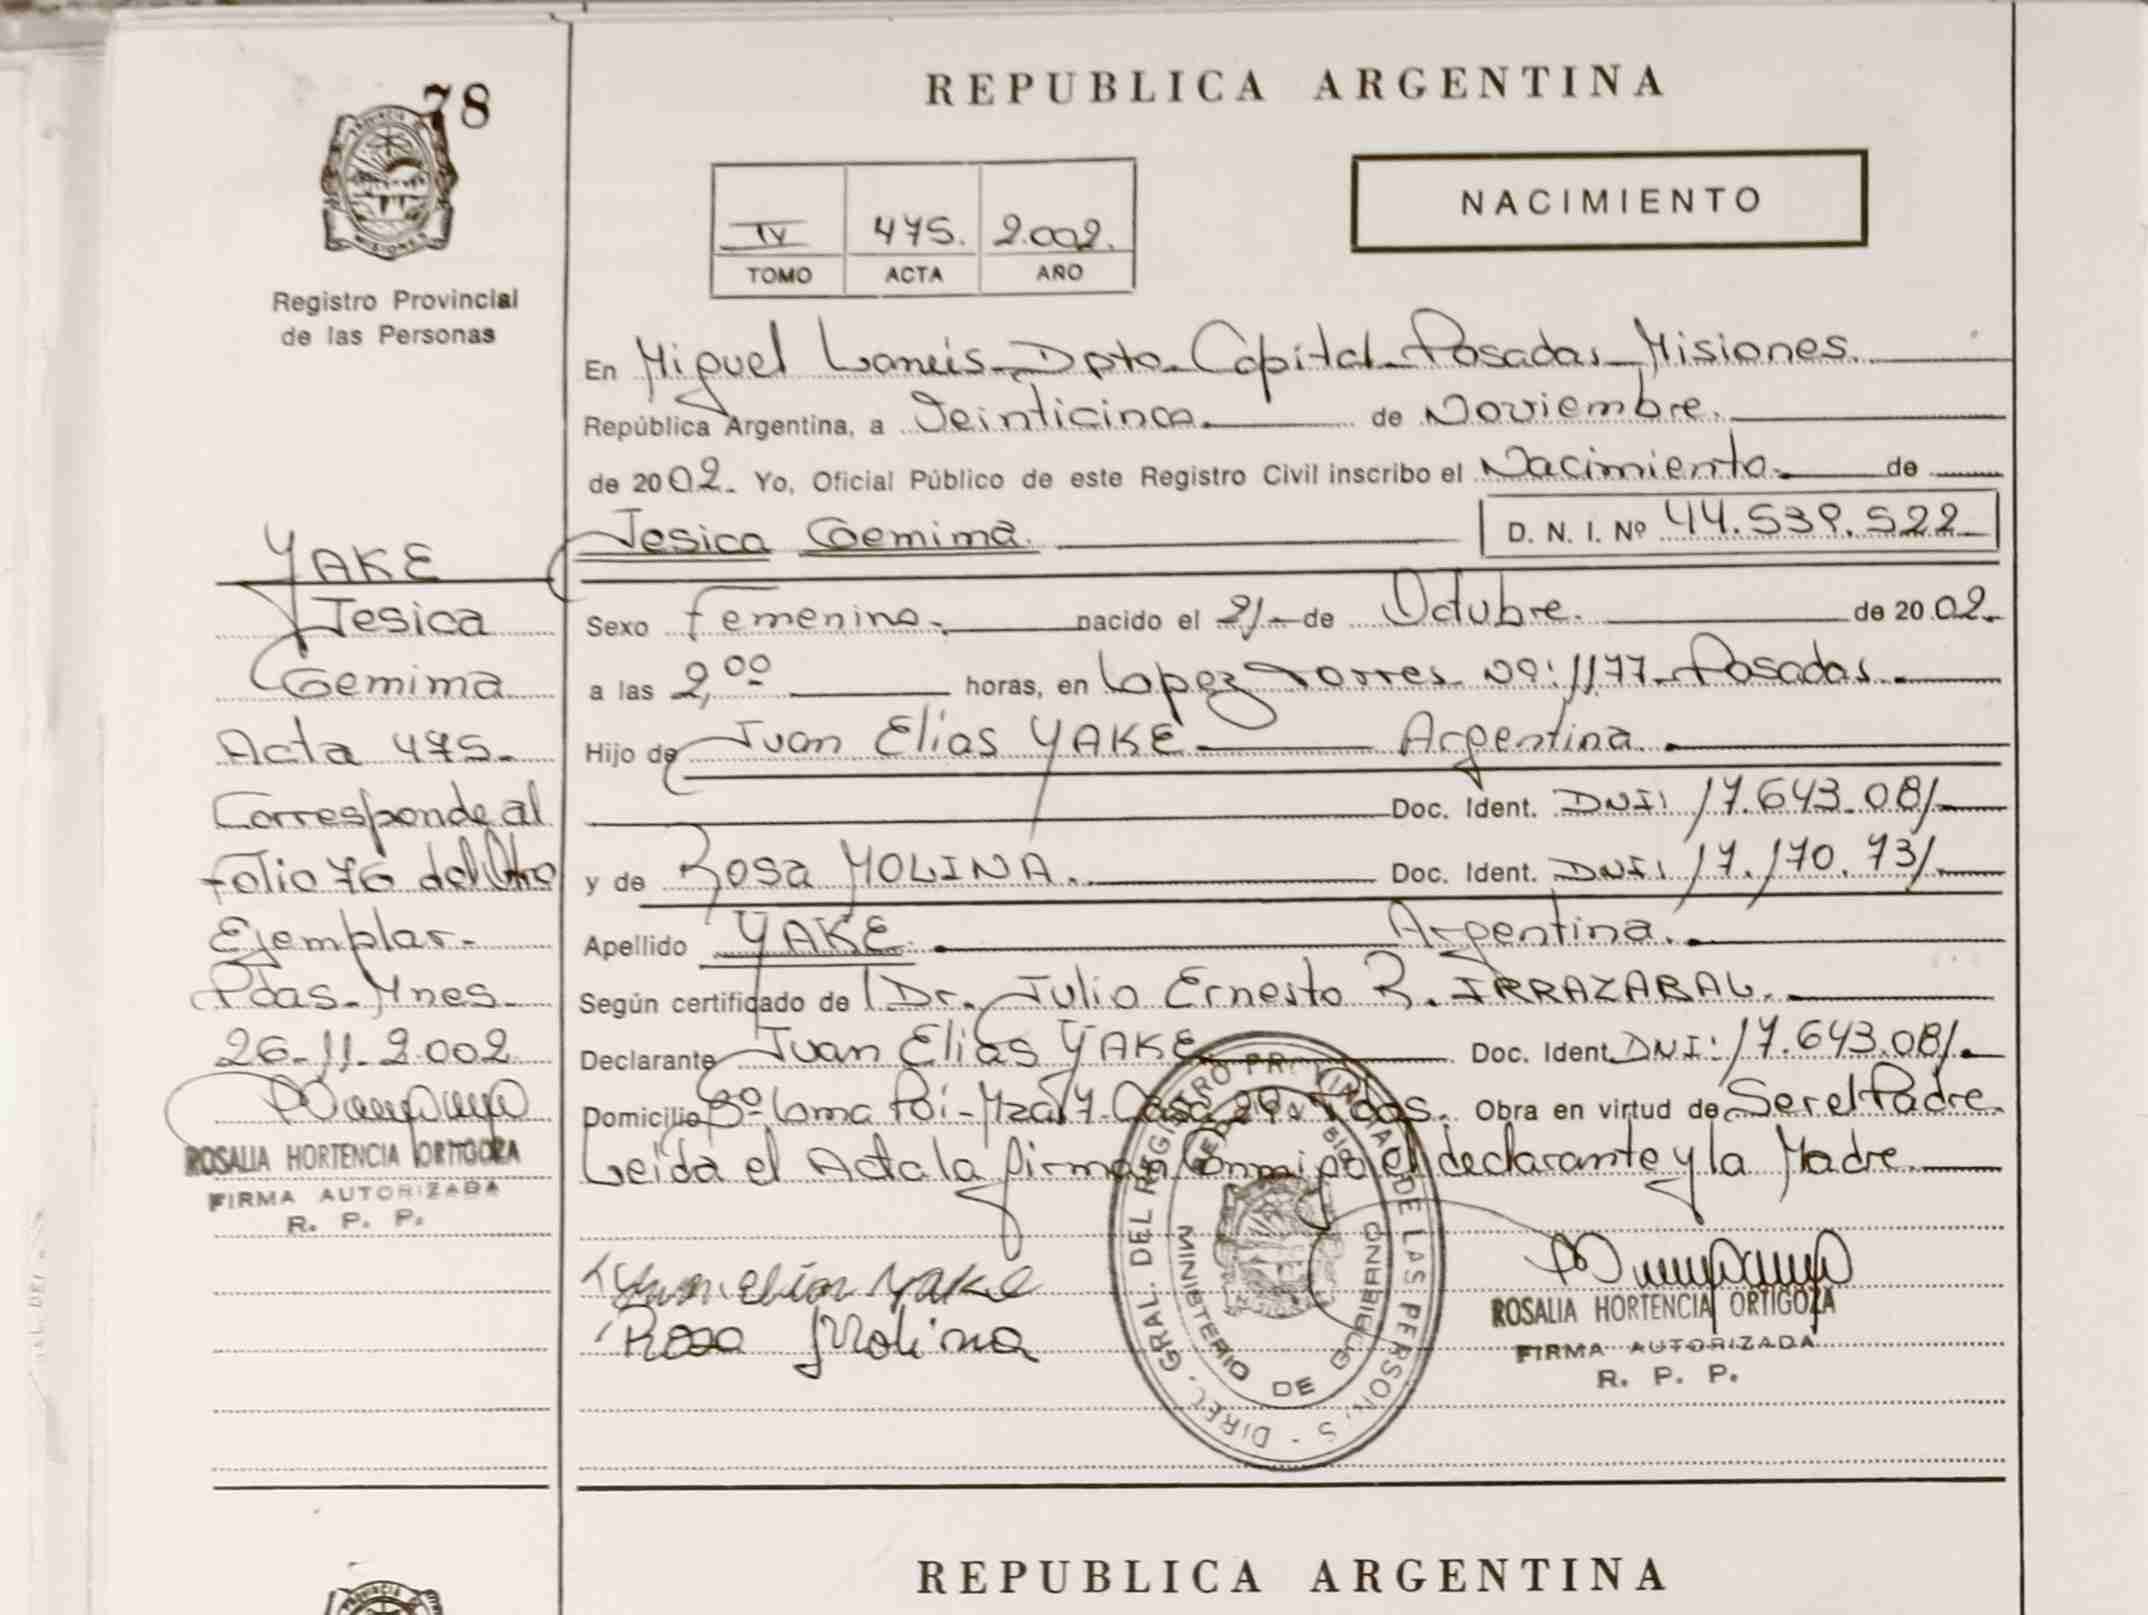 78
PROVINCIA DE
MISIONES
Registro Provincial
de las Personas
REPUBLICA ARGENTINA
NACIMIENTO
IV 475. 2.002.
TOMO ACTA AÑO
En Miguel Laneis - Dpto. Capital - Posadas - Misiones.
República Argentina, a Veinticinco. de Noviembre.
de 2002. Yo, Oficial Público de este Registro Civil inscribo el Nacimiento. de
Jesica Gemima. D. N. I. Nº 44.539.522
Sexo Femenino. nacido el 21 - de Octubre. de 2002.
a las 2,00 horas, en Lopez Torres Nº: 1177 - Posadas.
Hijo de Juan Elias YAKE Argentina.
Doc. Ident. DNI: 17.643.081.
y de Rosa MOLINA. Doc. Ident. DNI: 17.170.731.
Apellido YAKE. Argentina.
Según certificado de Dr. Julio Ernesto R. IRRAZABAL.
Declarante Juan Elias YAKE Doc. Ident. DNI: 17.643.081.
Domicilio Bº Loma Poi - Mza 17. Casa 29. Pdas. Obra en virtud de Ser el Padre.
Leida el Acta la firman Conmigo el declarante y la Madre.
Juan Elias Yake
Rosa Molina
ROSALIA HORTENCIA ORTIGOZA
FIRMA AUTORIZADA
R. P. P.
DIREC. GRAL. DEL REGISTRO PROVINCIAL DE LAS PERSONAS
MINISTERIO DE GOBIERNO
YAKE
Jesica
Gemima
Acta 475.
Corresponde al
Folio 76 del Otro
Ejemplar.
Pdas. Mnes.
26-11-2.002
ROSALIA HORTENCIA ORTIGOZA
FIRMA AUTORIZADA
R. P. P.
REPUBLICA ARGENTINA
PROVINCIA